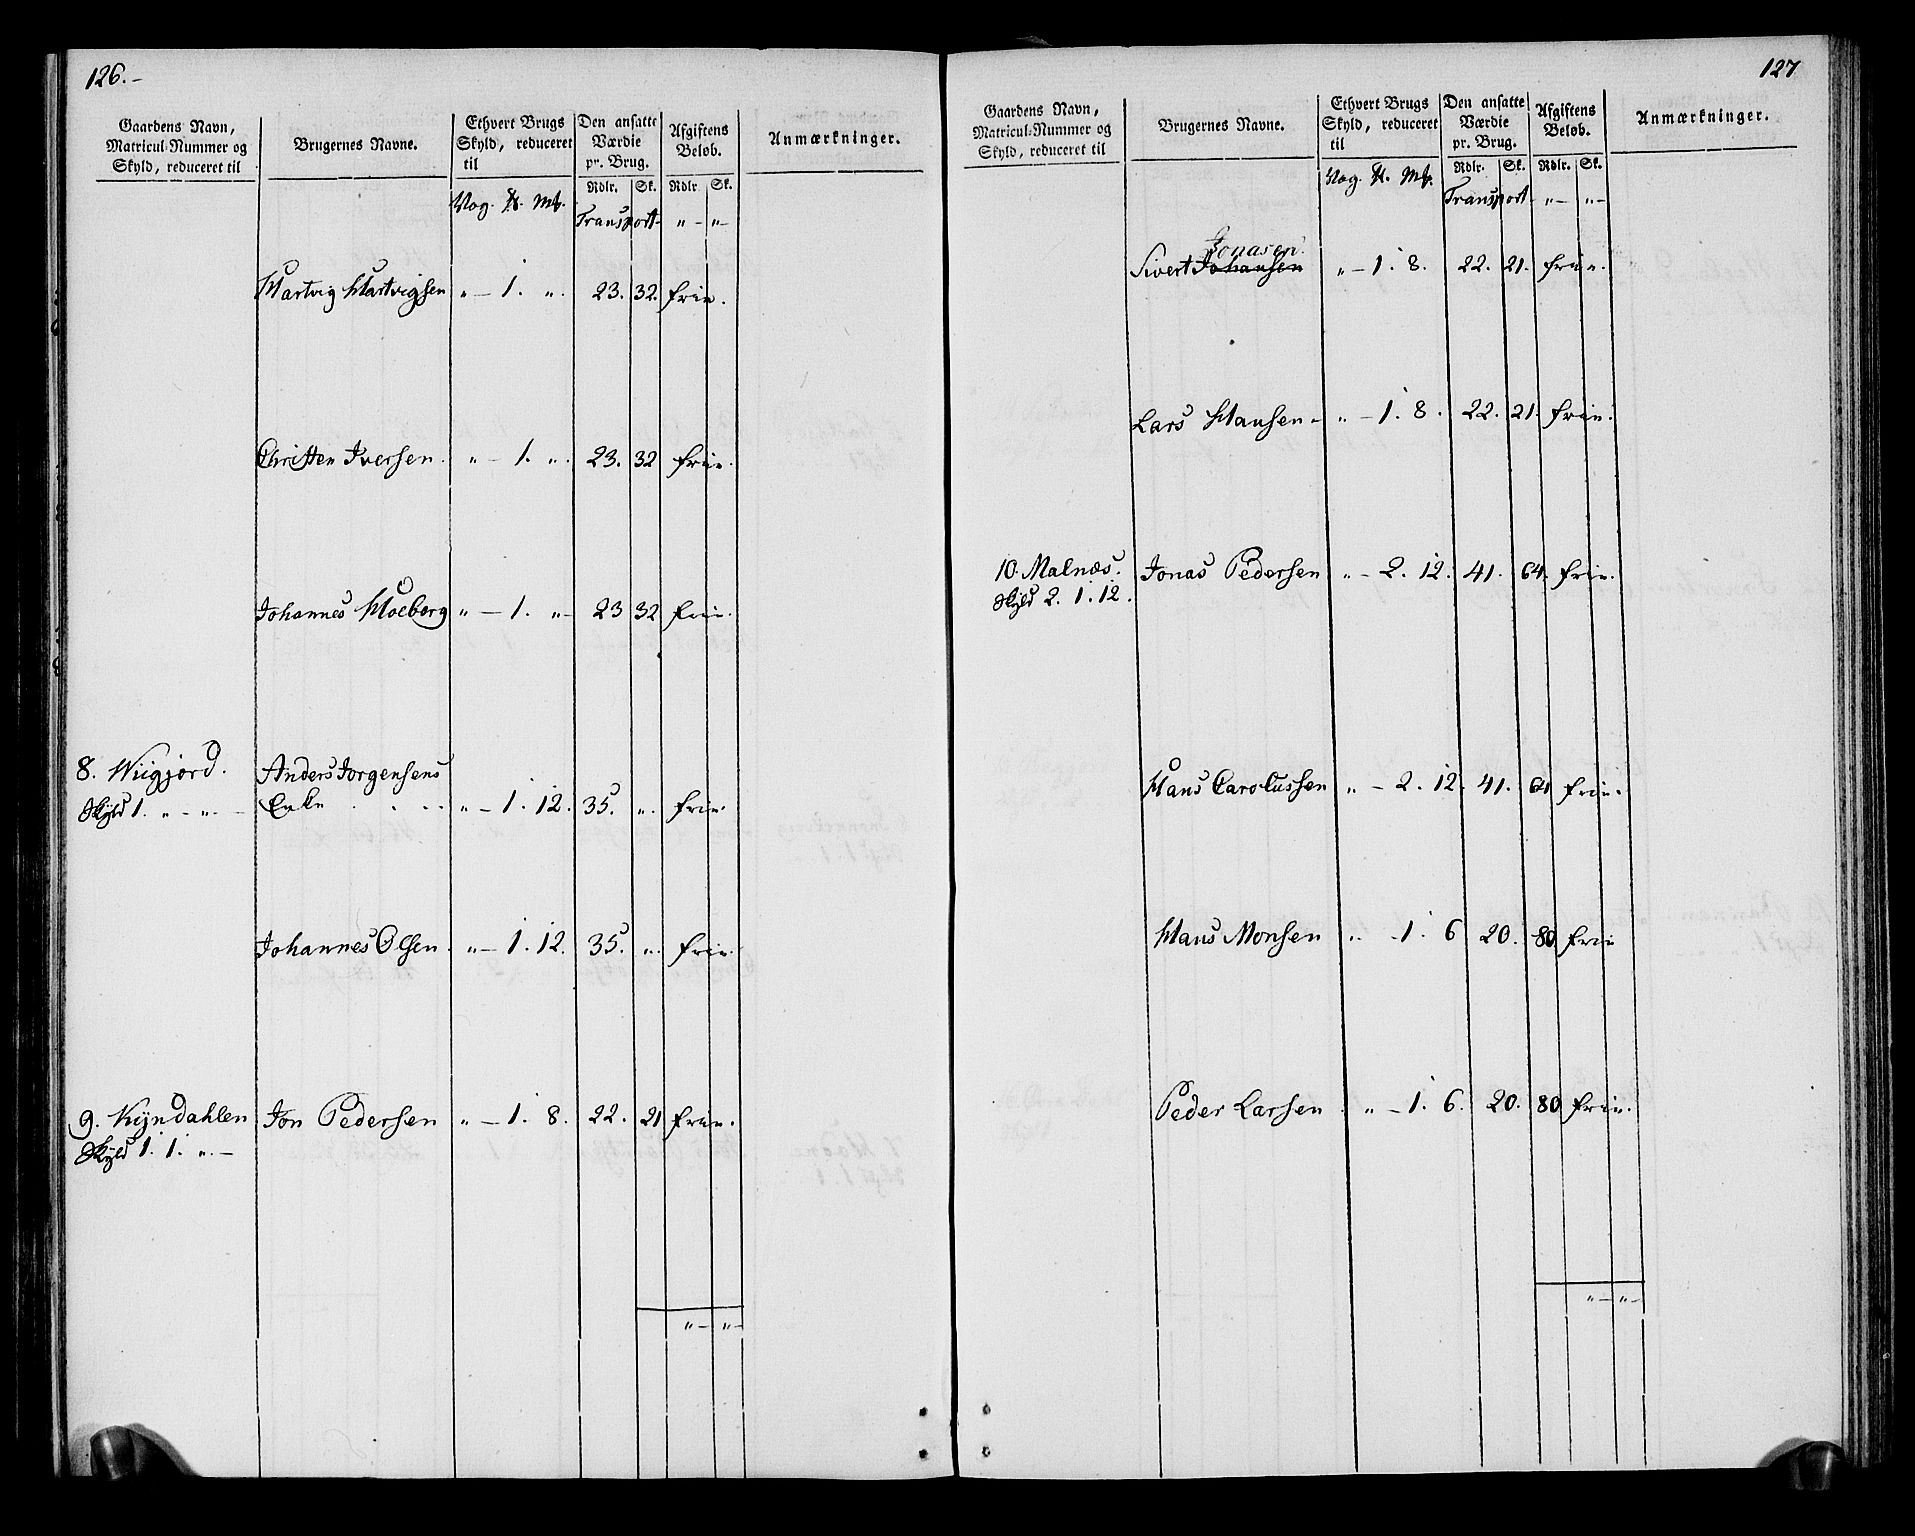 126.-
Gaardens Navn, Matricul-Nummer og Skyld, reduceret til
Brugernes Navne.
Ethvert Brugs Skyld, reduceret til
Den ansatte Værdie pr. Brug.
Afgiftens Beløb.
Anmærkninger.
Rdlr. Sk. Rdlr. Sk.
Vog. ℔. Mk. Transport - „ - „ -
Hartvig Hartvigsen „ - 1. „. 23. 32. frie.
Christen Iversen. „ - 1. „. 23. 32 frie.
Johannes Hoeborg „ - 1. „ - 23 32 frie.
8. Wiigjord. Anders Jorgensens
Skyld 1. „ - „ - Enke . . . „ - 1. 12. 35. „. frie
Johannes Olsen. „ - 1. 12. 35. „. frie.
9. Kyndahlen Jon Pedersen „ - 1. 8. 22. 21 frie.
Skyld 1. 1. „. -
„ - „ -
127
Gaardens Navn, Matricul-Nummer og Skyld, reduceret til
Brugernes Navne.
Ethvert Brugs Skyld, reduceret til
Den ansatte Værdie pr. Brug.
Afgiftens Beløb.
Anmærkninger.
Rdlr. Sk. Rdlr. Sk.
Vog. ℔. Mk. Transport - „ - „ -
Jonasen.
Sivert Johansen „ - 1. 8. 22. 21. frie.
Lars Hansen - „ - 1. 8. 22. 21. frie.
10. Malnæs. Jonas Pedersen „ - 2. 12. 41. 64. frie.
Skyld 2. 1. 12.
Hans Carolussen „ - 2. 12. 41. 64 frie.
Hans Monsen „ - 1. 6 20. 80 frie
Peder Larsen . „ - 1. 6. 20. 80 frie.
„ - „ -